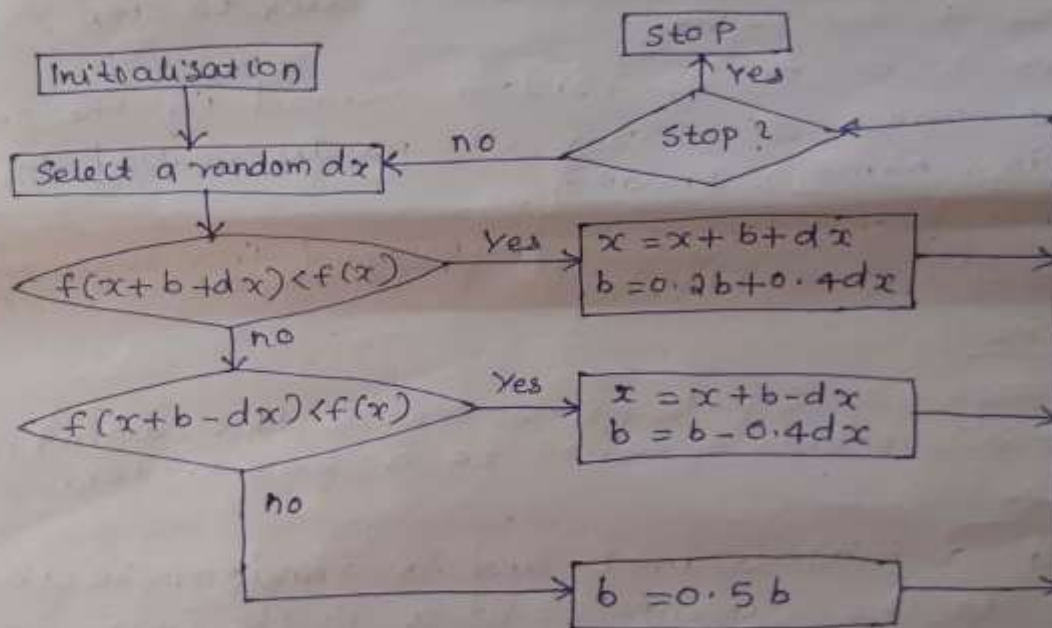 Stop
Initoalisation
Yes
Stop ?
no
Select a random dx
f(x+b+dx)<f(x)
Yes
x = x + b + dx
b = 0.2b+0.4dx
no
f(x+b-dx)<f(x)
Yes
x = x+b-dx
b = b-0.4dx
no
b = 0.5b